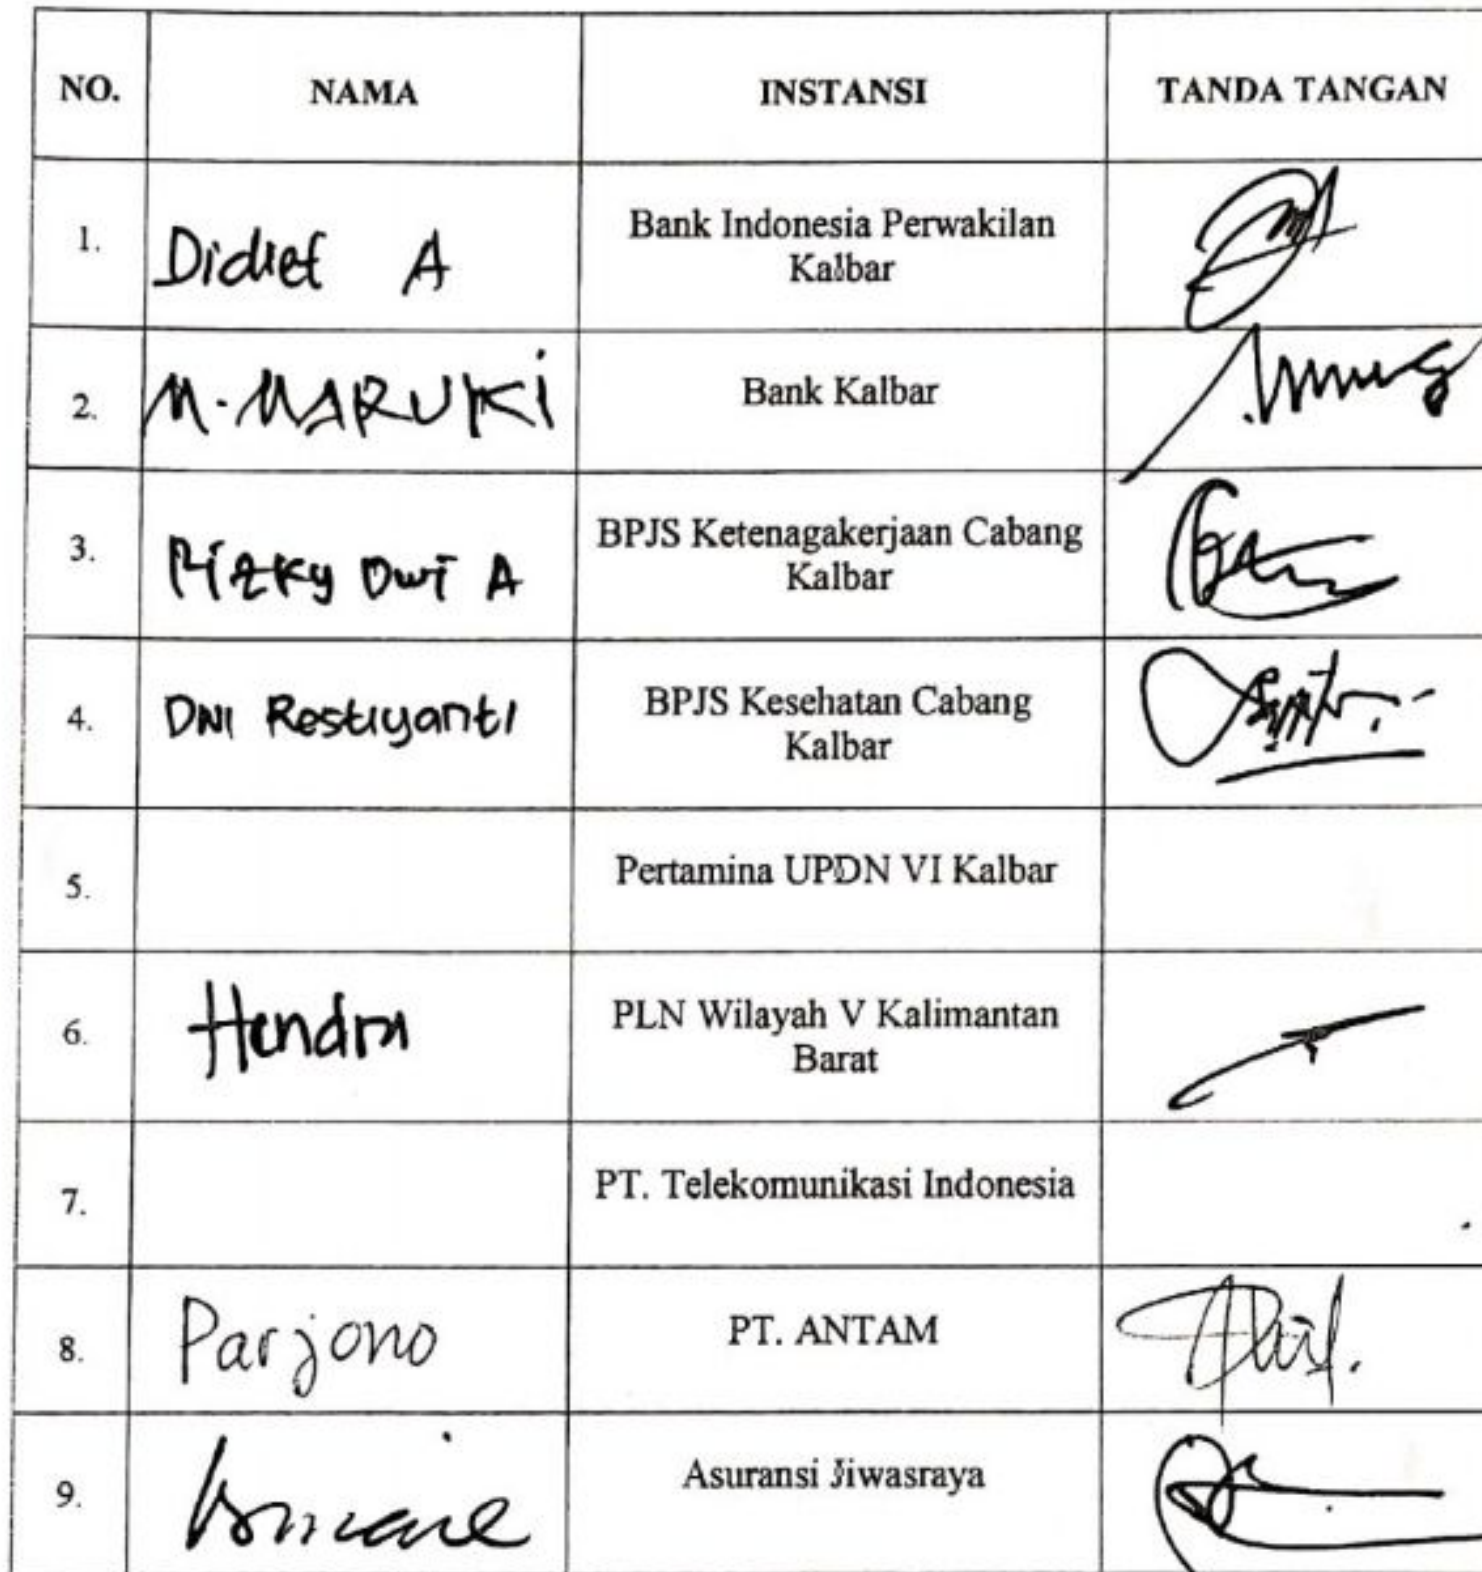 NO. NAMA INSTANSI TANDA TANGAN
1. Didief A Bank Indonesia Perwakilan
Kalbar
2. M. MARUKI Bank Kalbar
3. Rizky Dwi A BPJS Ketenagakerjaan Cabang
Kalbar
4. DWI Restiyanti BPJS Kesehatan Cabang
Kalbar
5. Pertamina UPDN VI Kalbar
6. Hendra PLN Wilayah V Kalimantan
Barat
7. PT. Telekomunikasi Indonesia
8. Parjono PT. ANTAM
9. Asuransi Jiwasraya